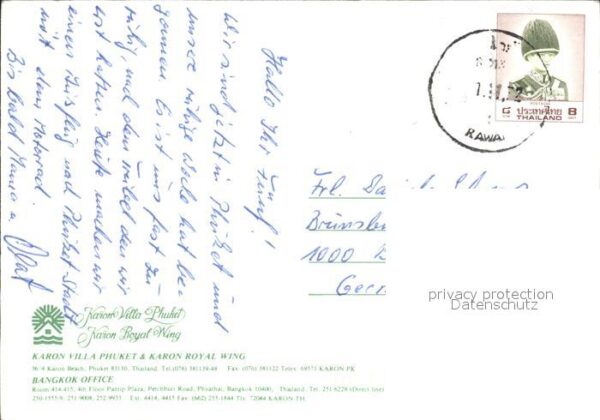 Hallo Ihr Fünf!
Wir sind jetzt in Phuket und
unsere ruhige Woche hat be-
gonnen. Es ist uns fast zu
ruhig, nach dem Trubel den wir
erst hatten. Heute machen wir
einen Ausflug nach Phuket Stadt
mit dem Motorrad.
Bis bald
Olaf
ประเทศไทย
8
THAILAND
RAWA
Frl.
1000
Ger
privacy protection
Datenschutz
Karon Villa Phuket
Karon Royal Wing
KARON VILLA PHUKET & KARON ROYAL WING
36/4 Karon Beach, Phuket 83110, Thailand. Tel.(076) 381139-48 Fax: (076) 381122 Telex 69571 KARON PK
BANGKOK OFFICE
Room 414-415, 4th Floor Pantip Plaza, Petchburi Road, Phyathai, Bangkok 10400, Thailand. Tel. 251-6228 (Direct line)
250-1555/9, 251-9088, 252-9933 Ext. 4414, 4415 Fax: (662) 255-1844 Tlx 72044 KARON-TH